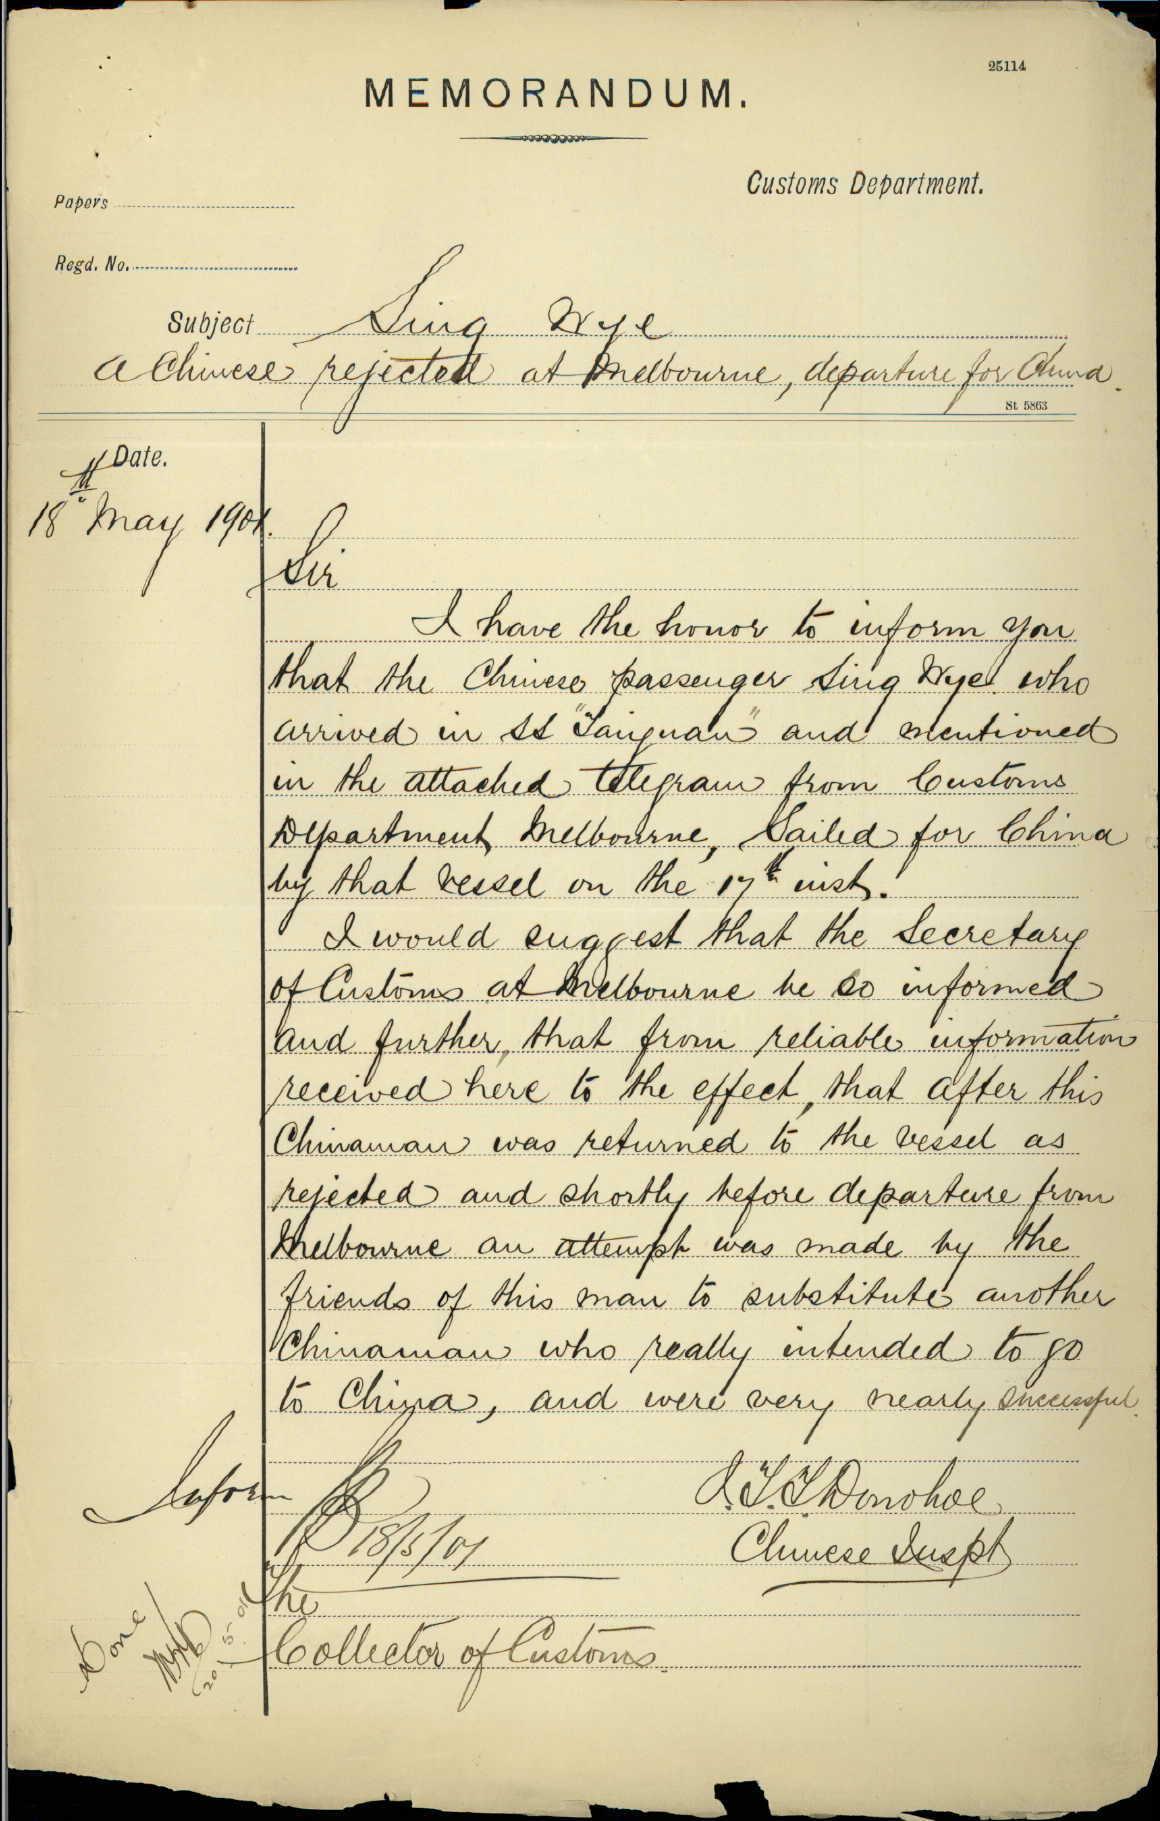 25114
MEMORANDUM.
Customs Department.
Papers
Regd. No.
Subject Sing Wye
a Chinese rejected at Melbourne, departure for China.
St. 5863
Date.
18th May 1901.
Sir
I have the honor to inform you
that the Chinese passenger Sing Wye who
arrived in SS "Taiyuan" and mentioned
in the attached telegram from Customs
Department, Melbourne, Sailed for China
by that vessel on the 17th inst.
I would suggest that the Secretary
of Customs at Melbourne be so informed
and further, that from reliable information
received here to the effect, that after this
Chinaman was returned to the vessel as
rejected and shortly before departure from
Melbourne an attempt was made by the
friends of this man to substitute another
Chinaman who really intended to go
to China, and were very nearly successful.
J.T.T. Donohoe
Chinese Inspt
Inform
18/5/01
The
Collector of Customs.
Done
20.5.01